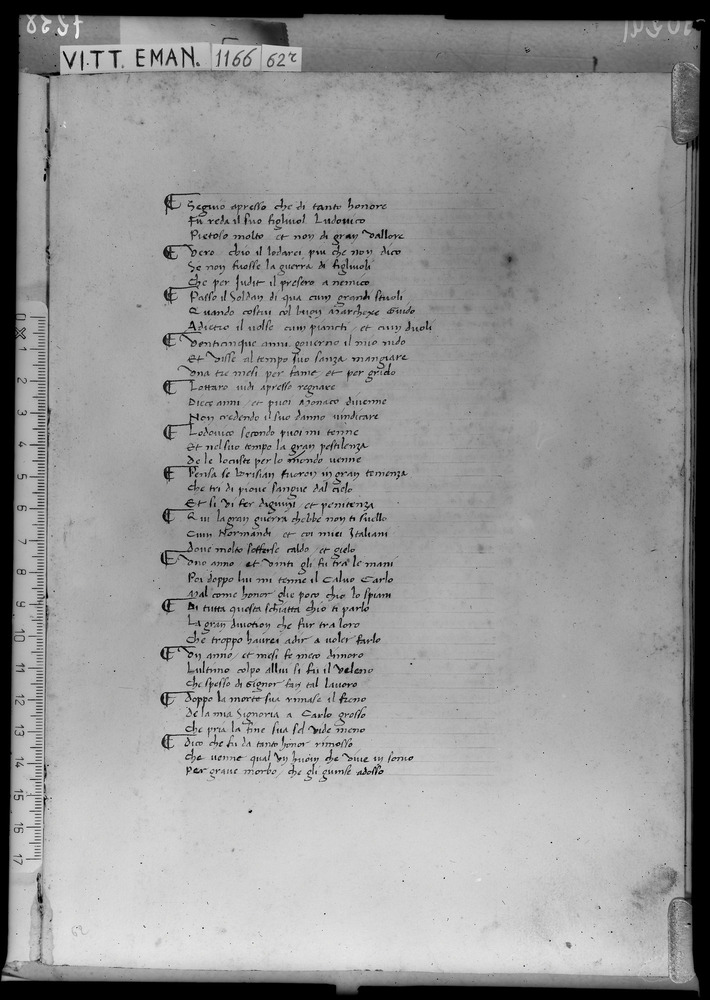 VI.TT. EMAN. 1166 62r
Seguio apresso che di tanto honore
Fu reda il suo figliuol Ludouico
Pietoso molto et non di gran vallore
Vero chio il lodarei piu che non dico
Se non fuosse la guerra di figliuoli
Che per Judit il presero a nemico
Passo il Soldan di qua cum grandi stuoli
Quando costui col buon Marchexe Guido
Adietro il volse cum piancti et cum duoli
Venticinque anni gouerno il mio nido
Et visse al tempo suo sanza mangiare
Vna tre mesi per fame et per grido
Lottaro vidi apresso regnare
Diece anni et puoi Monaco diuenne
Non credendo il suo danno vindicare
Lodouico secondo puoi mi tenne
Et nel suo tempo la gran pestilenza
De le locuste per lo mondo venne
Pensa se brisian fueron in gran temenza
Che tri di piove sangue dal cielo
Et si vi fer digiuni et penitenza
Qui la gran guerra chebbe non ti suello
Cum Normandi et coi miei Italiani
Doue molto sofferse caldo et gielo
Vno anno et vinti gli fu tra le mani
Poi doppo lui mi tenne il Caluo Carlo
Mal come honor glie poco chio lo spiani
Di tutta questa schiatta chio ti parlo
La gran diuotion che fur tra loro
Che troppo haurei adir a voler farlo
Vn anno et mesi fe meco dimoro
Lultimo colpo allui si fu il veleno
Che spesso di signor fan tal lauoro
doppo la morte sua rimase il freno
De la mia Signoria a Carlo grosso
Che pria la fine sua sel vide meno
dico che fu da tanto honor rimosso
Che venne qual vn huom che viue in sonio
Per graue morbo che gli giunse adosso
62
0 1 2 3 4 5 6 7 8 9 10 11 12 13 14 15 16 17